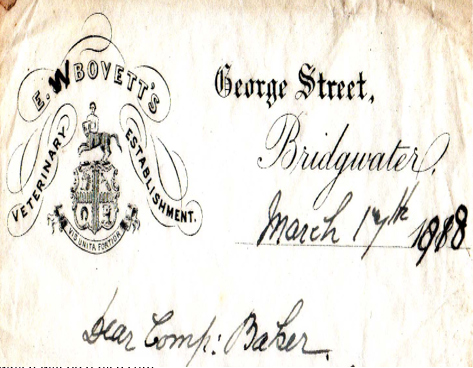 E. W BOVETT'S
VETERINARY ESTABLISHMENT.
VIS UNITA FORTIOR
George Street,
Bridgwater,
March 17th 1888
Dear Comp: Baker.